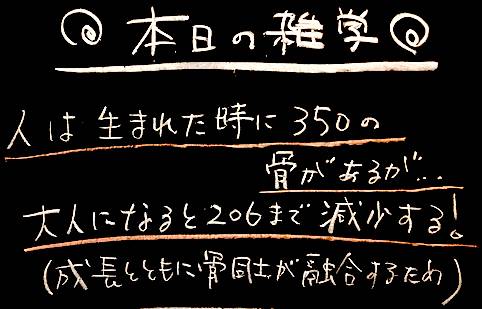 本日の雑学
人は生まれた時に350の
骨があるが...
大人になると206まで減少する!
(成長とともに骨同士が融合するため)